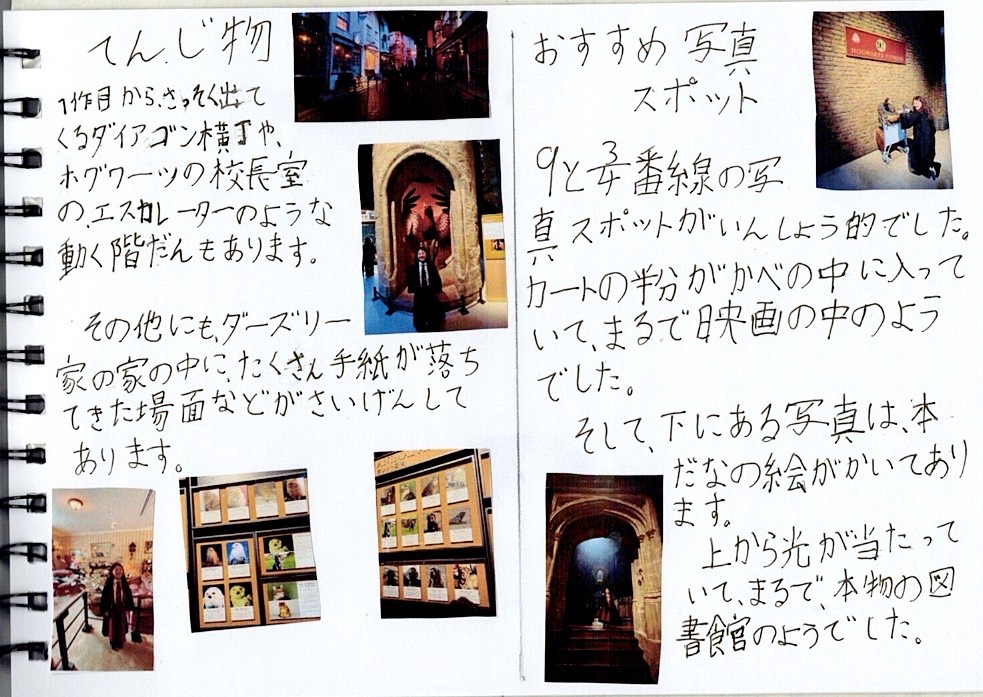 てんじ物
1作目から、さっそく出て
くるダイアゴン横丁や、
ホグワーツの校長室
の、エスカレーターのような
動く階だんもあります。
その他にも、ダーズリー
家の家の中に、たくさん手紙が落ち
てきた場面などがさいげんして
あります。
おすすめ 写真
スポット
9と3/4番線の写
真スポットがいんしょう的でした。
カートの半分がかべの中に入って
いて、まるで映画の中のよう
でした。
そして、下にある写真は、本
だなの絵がかいてあり
ます。
上から光が当たって
いて、まるで、本物の図
書館のようでした。
HOGWARTS EXPRESS